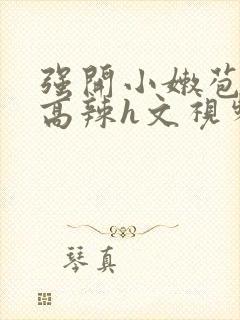 强開小嫩苞
高辣h文視
琴真